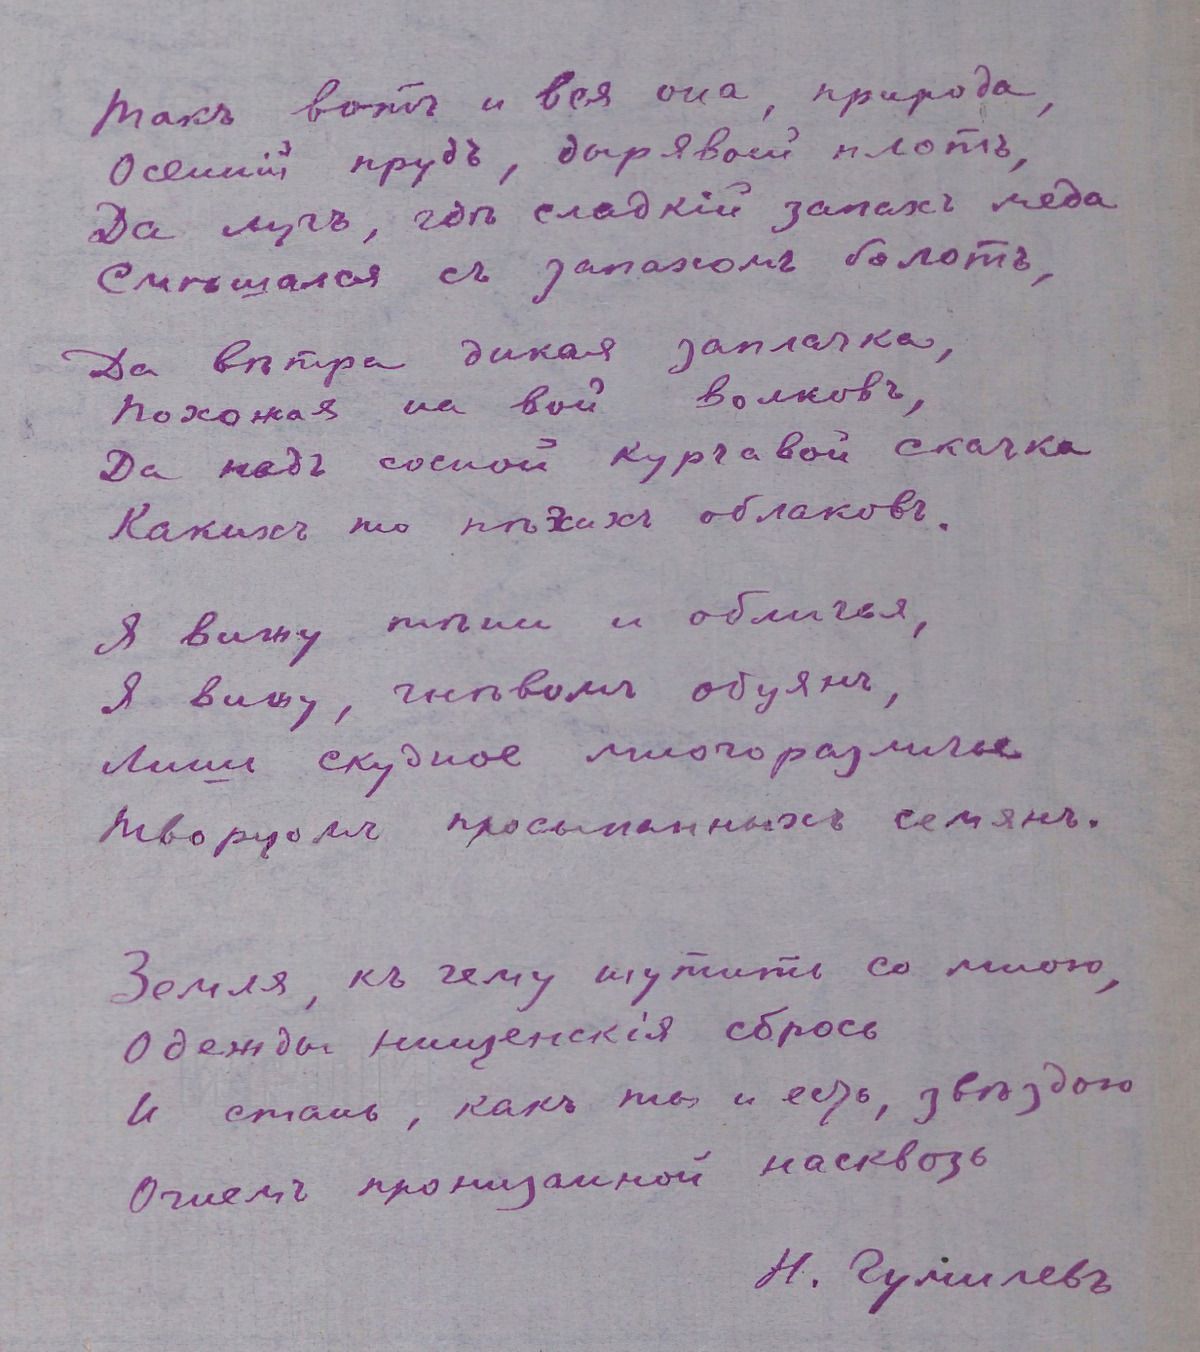 Такъ вотъ и вся она, природа,
Осенній прудъ, дырявый плотъ,
Да лугъ, гдѣ сладкій запахъ меда
Смѣшался съ запахомъ болотъ,
Да вѣтра дикая заплачка,
Похожая на вой волковъ,
Да надъ сосной курчавой скачка
Какихъ то пѣгихъ облаковъ.
Я вижу тѣни и обличья,
Я вижу, гнѣвомъ обуянъ,
Лишь скудное многоразличье
Творцомъ просыпанныхъ семянъ.
Земля, къ чему шутить со мною,
Одежды нищенскія сбрось
И стань, какъ ты и есть, звѣздою
Огнемъ пронизанной насквозь
Н. Гумилевъ